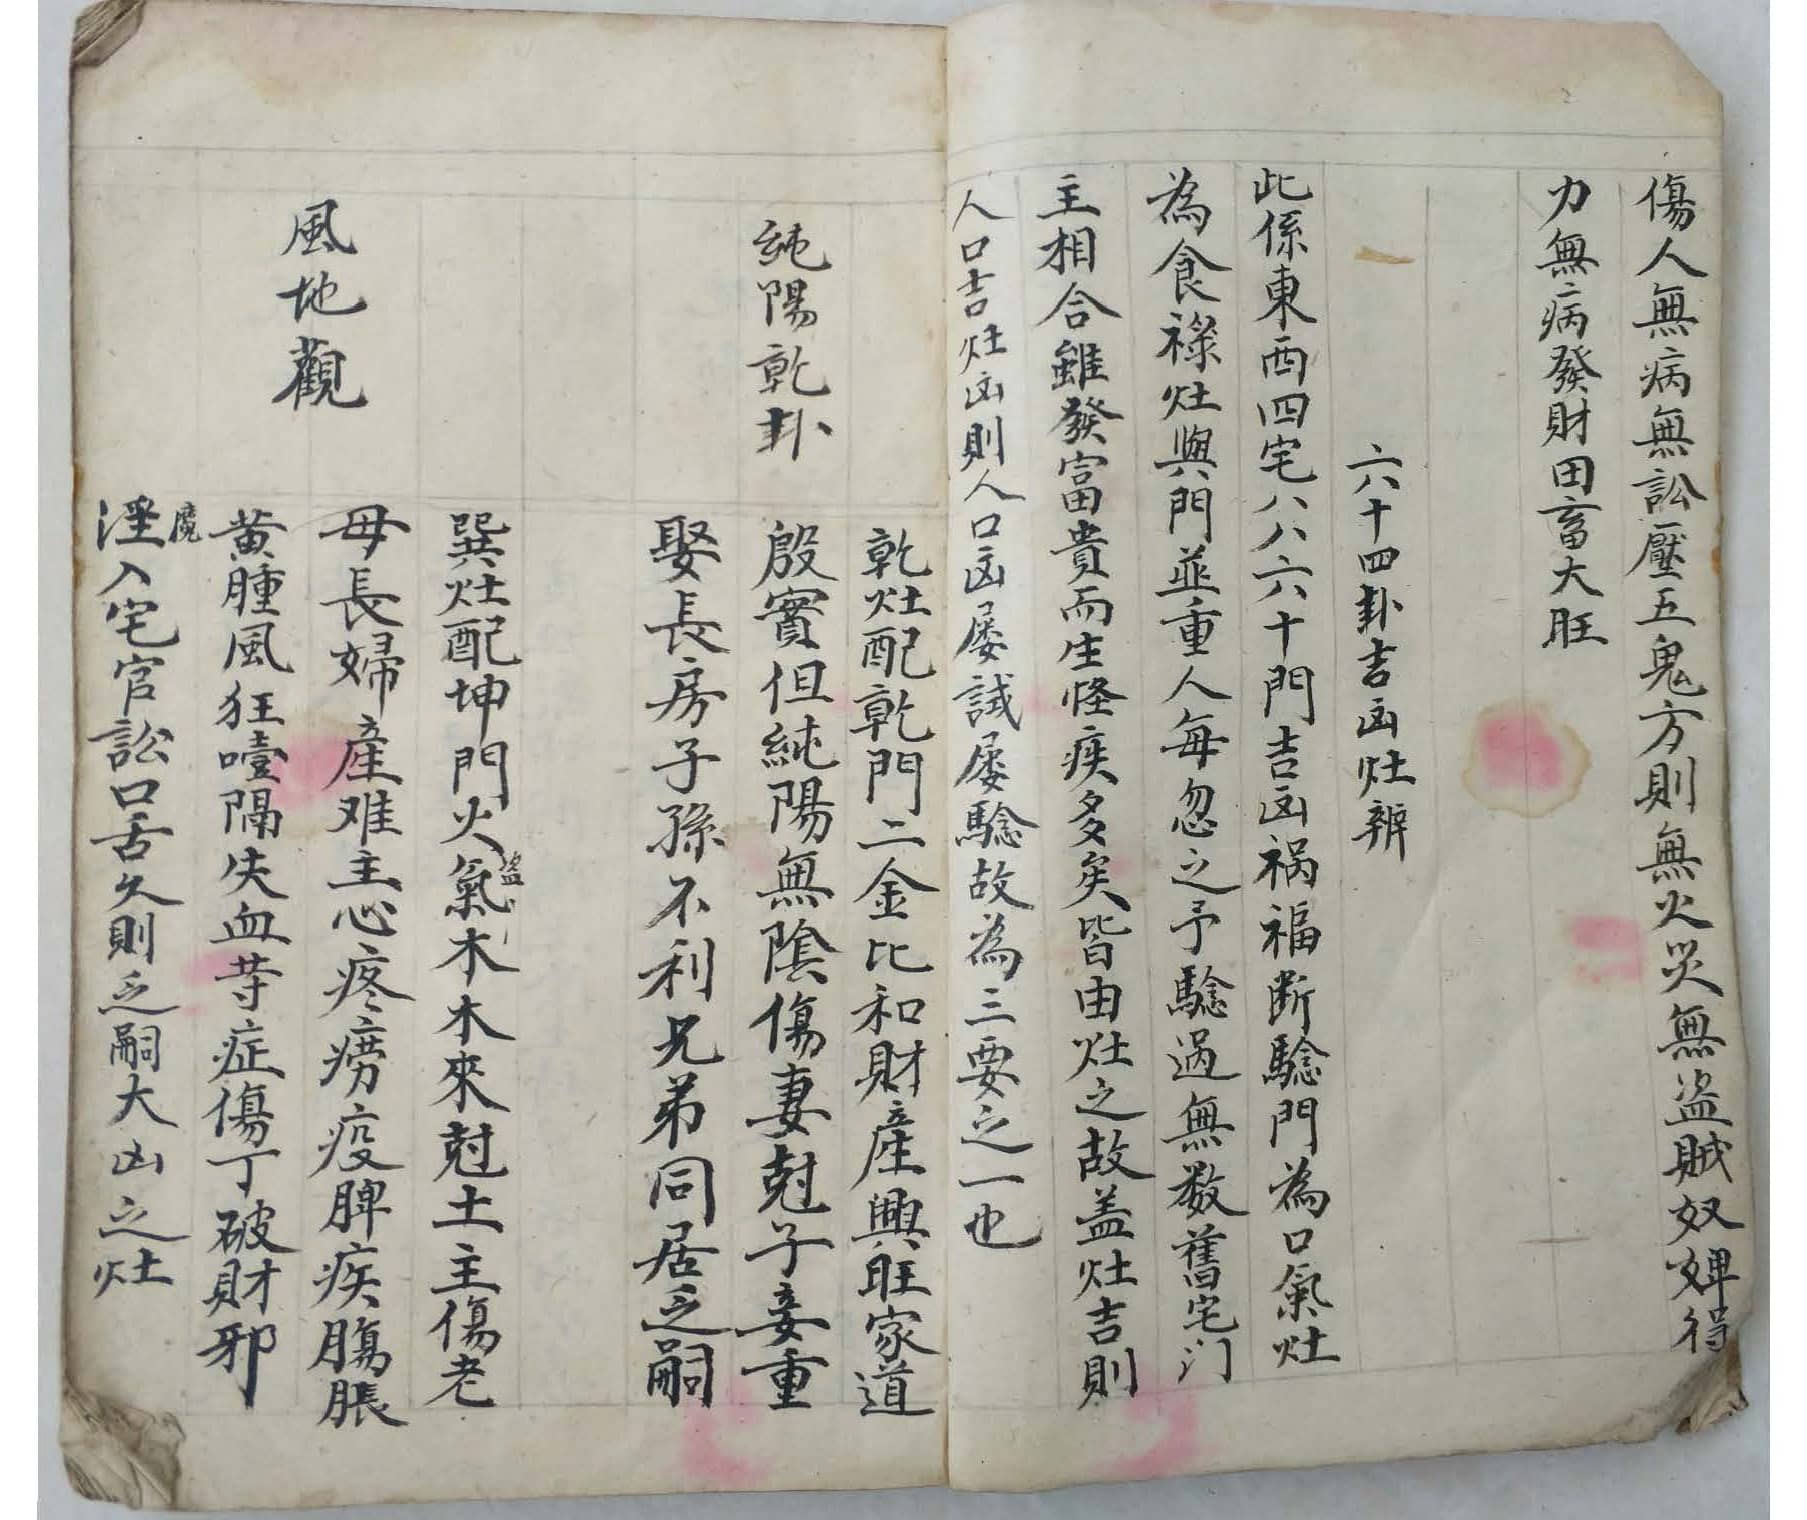 傷人無病無訟壓五鬼方則無火災無盜賊奴婢得
力無病發財田畜大旺
六十四卦吉凶灶辨
此係東西四宅八八六十門吉凶禍福断驗門為口氣灶
為食祿灶與門並重人每忽之予驗過無数舊宅门
主相合雖發富貴而生怪疾多矣皆由灶之故盖灶吉則
人口吉灶凶則人口凶屡試屡驗故為三要之一也
純陽乾卦
乾灶配乾門二金比和財產興旺家道
殷實但純陽無陰傷妻尅子妾重
娶長房子孫不利兄弟同居乏嗣
風地觀
巽灶配坤門火氣木木來尅土主傷老
盜
母長婦產难主心疼痨疫脾疾膓脹
黄腫風狂噎隔失血等症傷丁破財邪
魔
淫入宅官訟口舌久則乏嗣大凶之灶